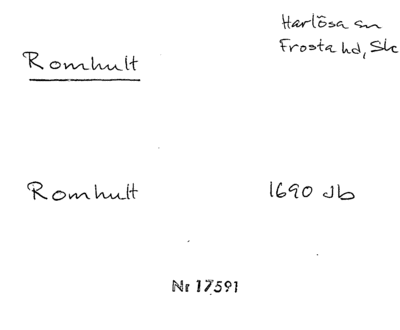 Harlösa sn
Frosta hd, Sk
Romhult
Romhult 1690 Jb
Nr 17591